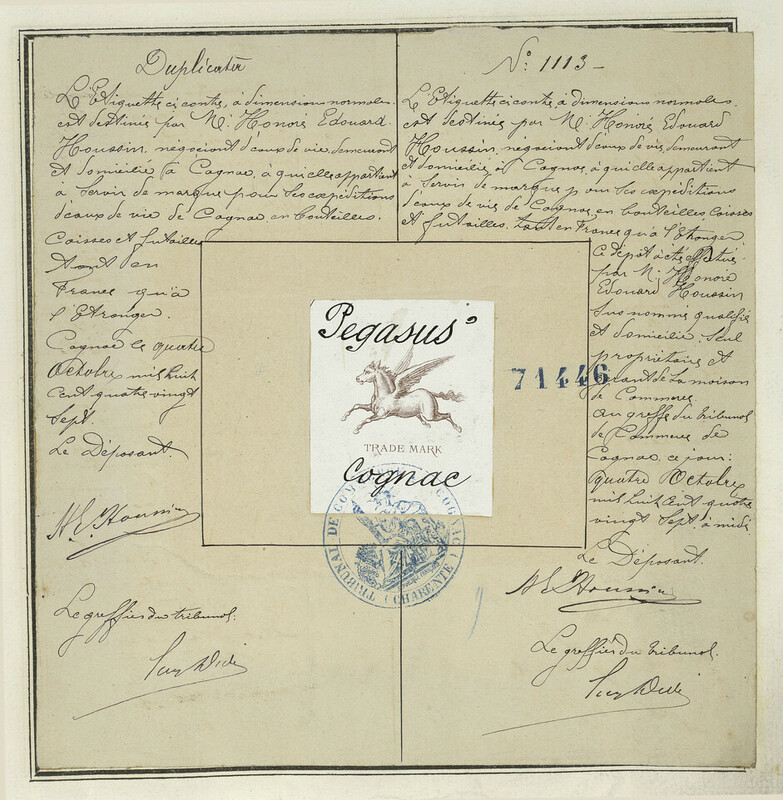 Duplicata
L'Etiquette ci contre, à dimensions normales.
est destinée par Mr Honoré Edouard
Houssin, négociant d'eaux de vie, demeurant
et domicilié à Cognac, à qui elle appartient
à servir de marque pour ses expéditions
d'eaux de vie de Cognac, en bouteilles.
Caisses et futailles
tant en
France qu'à
l'Etranger.
Cognac le quatre
Octobre mil huit
cent quatre vingt
sept.
Le Déposant
H. E. Houssin
Le greffier du tribunal.
No: 1113 -
L'Etiquette ci contre, à dimensions normales.
est destinée par Mr Honoré Edouard
Houssin, négociant d'eaux de vie, demeurant
et domicilié à Cognac, à qui elle appartient
à servir de marque pour ses expéditions
d'eaux de vie de Cognac, en bouteilles, caisses
et futailles, tant en France qu'à l'Etranger
Ce dépôt a été effectué
par Mr Honoré
Edouard Houssin
sus nommé qualifié
et domicilié. Seul
propriétaire et
gérant de la maison
de Commerce
au greffe du tribunal
de Commerce de
Cognac, ce jour:
quatre Octobre
mil huit cent quatre
vingt sept à midi
Le Déposant.
H E Houssin
Le greffier du tribunal.
Pegasus
TRADE MARK
Cognac
71446
TRIBUNAL DE COMMERCE COGNAC (CHARENTE)